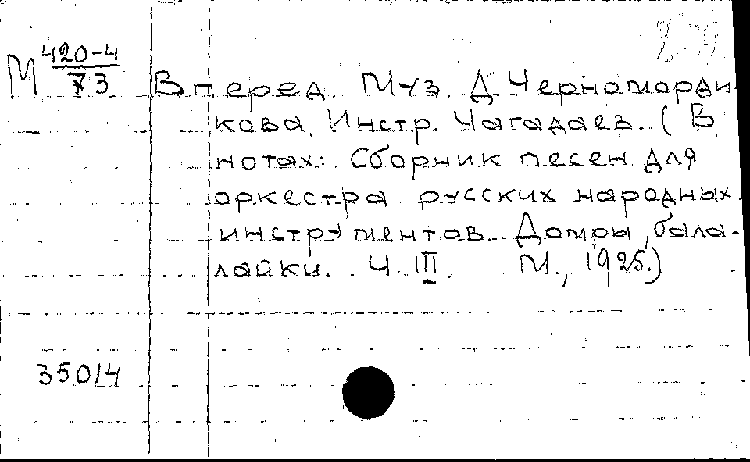 М 420-4
73
Вперед. Муз. Д. Черноморди-
кова. Инстр. Чагадаев. (В
нотах: Сборник песен для
оркестра русских народных
инструментов. Домры, бала-
лайки. Ч. III. М., 1925.)
35014